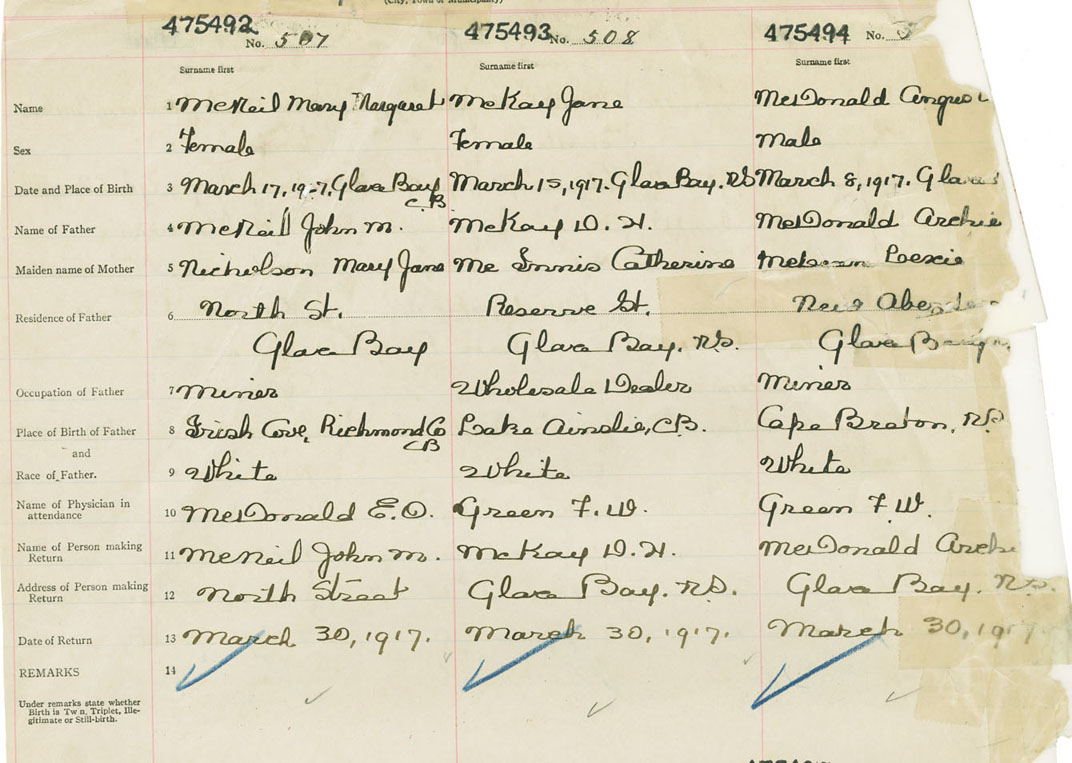 (City, Town or Municipality)
475492 No. 507 475493 No. 508 475494 No.
Surname first Surname first Surname first
Name 1 McNeil Mary Margaret McKay Jane McDonald Angus
Sex 2 Female Female Male
Date and Place of Birth 3 March 17, 1917, Glace Bay C.B. March 15, 1917. Glace Bay. N.S. March 8, 1917. Glace
Name of Father 4 McNeil John M. McKay D. H. McDonald Archie
Maiden name of Mother 5 Nicholson Mary Jane Mc Innis Catherine McLean
Residence of Father 6 North St. Reserve St. New Aberdeen
Glace Bay Glace Bay. N.S. Glace Bay
Occupation of Father 7 Miner Wholesale Dealer Miner
Place of Birth of Father 8 Irish Cove, Richmond Co C.B. Lake Ainslie, C.B. Cape Breton, N.S.
and
Race of Father. 9 White White White
Name of Physician in attendance 10 McDonald E.O. Green F. W. Green F. W.
Name of Person making Return 11 McNeil John M. McKay D. H. McDonald Archie
Address of Person making Return 12 North Street Glace Bay. N.S. Glace Bay. N.S.
Date of Return 13 March 30, 1917. March 30, 1917. March 30, 1917
REMARKS 14
Under remarks state whether
Birth is Twin, Triplet, Ille-
gitimate or Still-birth.